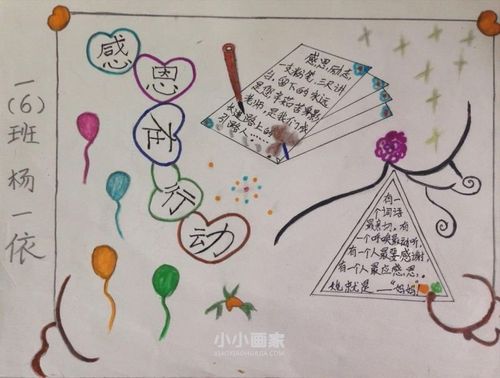 一(6)班杨一依
感恩在行动
感恩励志
一支粉笔,三尺讲
台,留下的永远
是您辛苦苦的身影
老师,是我们成
长道路上的
引路人……
有一
个词语
最亲切,有
一个呼唤最动听,
有一个人最要感谢,
有一个人最应感恩,
她就是——“妈妈”
小小画家
XIAOXIAOHUAJIA.COM